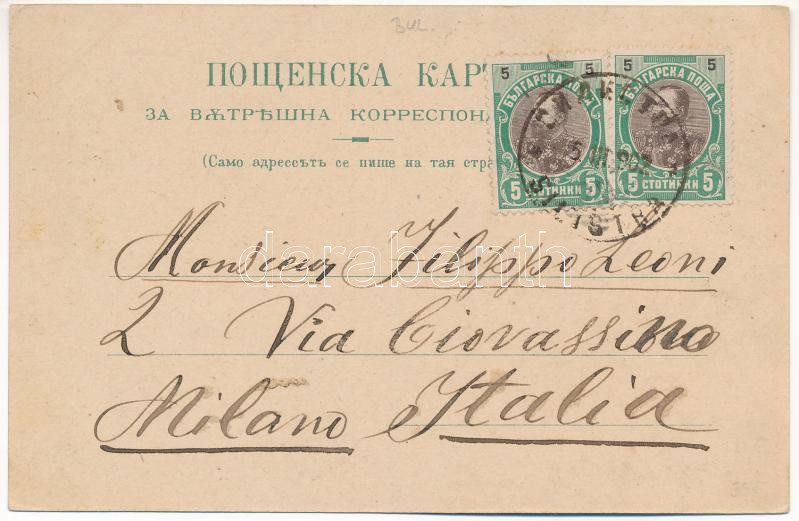 Bul.
ПОЩЕНСКА КАР
ЗА ВѪТРѢШНА КОРРЕСПОН
(Само адресетъ се пише на тая стра
5 5 5 5
БЪЛГАРСКА ПОЩА БЪЛГАРСКА ПОЩА
5 СТОТИНКИ 5 5 СТОТИНКИ 5
СИЛИСТРА
SILISTRA
Monsieur Filippo Leoni
2 Via Ciovassino
Milano Italia
darabanth